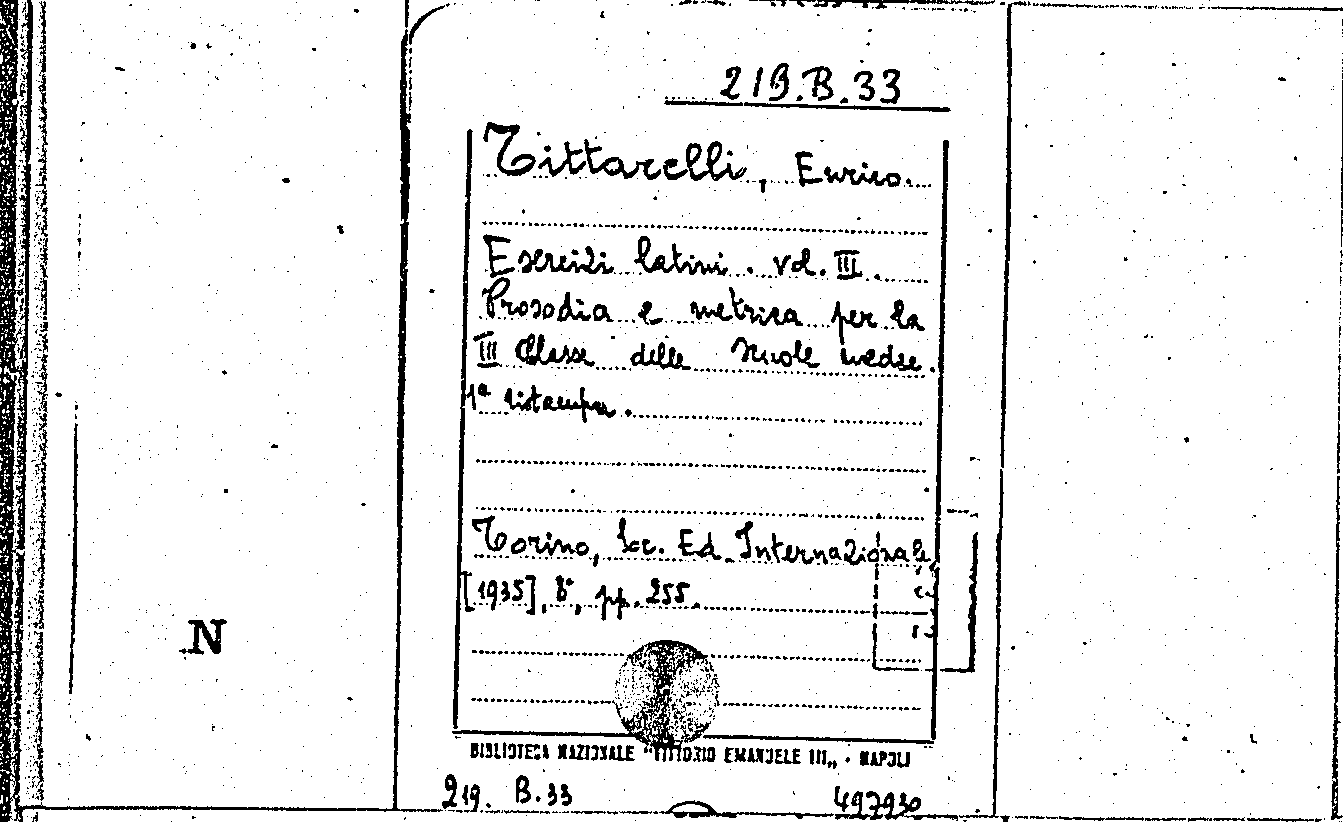 219.B.33
Tittarelli, Enrico.
Esercizi latini. vol. III.
Prosodia e metrica per la
III Classe delle Scuole medie.
1ª ristampa.
Torino, Soc. Ed. Internazionale,
[1935], 8°, pp. 255.
N
BIBLIOTECA NAZIONALE "VITTORIO EMANUELE III„ - NAPOLI
219. B.33 497930